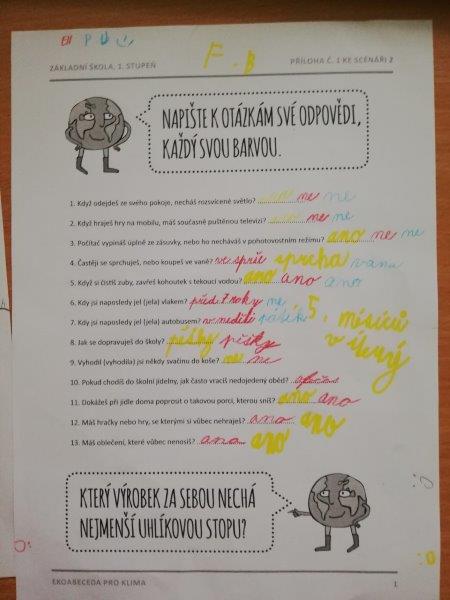 EN P U
F. B
ZÁKLADNÍ ŠKOLA, 1. STUPEŇ PŘÍLOHA Č. 1 KE SCÉNÁŘI 2
NAPIŠTE K OTÁZKÁM SVÉ ODPOVĚDI,
KAŽDÝ SVOU BARVOU.
1. Když odejdeš ze svého pokoje, necháš rozsvícené světlo? ne ne
2. Když hraješ hry na mobilu, máš současně puštěnou televizi? ne ne
3. Počítač vypínáš úplně ze zásuvky, nebo ho necháváš v pohotovostním režimu? ano ne ne
4. Častěji se sprchuješ, nebo koupeš ve vaně? ve sprše sprcha vana
5. Když si čistíš zuby, zavřeš kohoutek s tekoucí vodou? ano ano ano
6. Kdy jsi naposledy jel (jela) vlakem? před 2 roky ne 5. měsíců
7. Kdy jsi naposledy jel (jela) autobusem? v neděli pátek v úterý
8. Jak se dopravuješ do školy? pěšky pěšky
9. Vyhodil (vyhodila) jsi někdy svačinu do koše? ne ne
10. Pokud chodíš do školní jídelny, jak často vracíš nedojedený oběd? občas
11. Dokážeš při jídle doma poprosit o takovou porci, kterou sníš? ano ano
12. Máš hračky nebo hry, se kterými si vůbec nehraješ? ano ano
13. Máš oblečení, které vůbec nenosíš? ano ano
KTERÝ VÝROBEK ZA SEBOU NECHÁ
NEJMENŠÍ UHLÍKOVOU STOPU?
EKOABECEDA PRO KLIMA 1